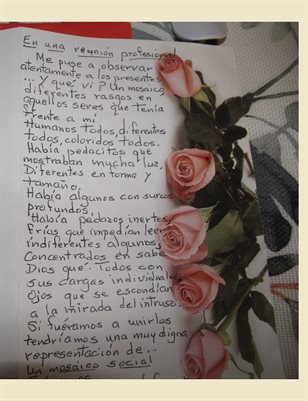 En una reunión profesional
Me puse a observar
atentamente a los presentes
... Y qué vi? Un mosaico
diferentes rasgos en
aquellos seres que tenía
frente a mí.
Humanos todos, diferentes
todos, coloridos todos.
Había pedacitos que
mostraban mucha luz.
Diferentes en forma y
tamaño.
Había algunos con surcos
profundos,
Había pedazos inertes,
Fríos que impedían leer
indiferentes algunos,
Concentrados en sabe
Dios qué. Todos con
sus cargas individuales
Ojos que se escondían
a la mirada del intruso.
Si fueramos a unirlas
tendríamos una muy digna
representación de...
un mosaico social